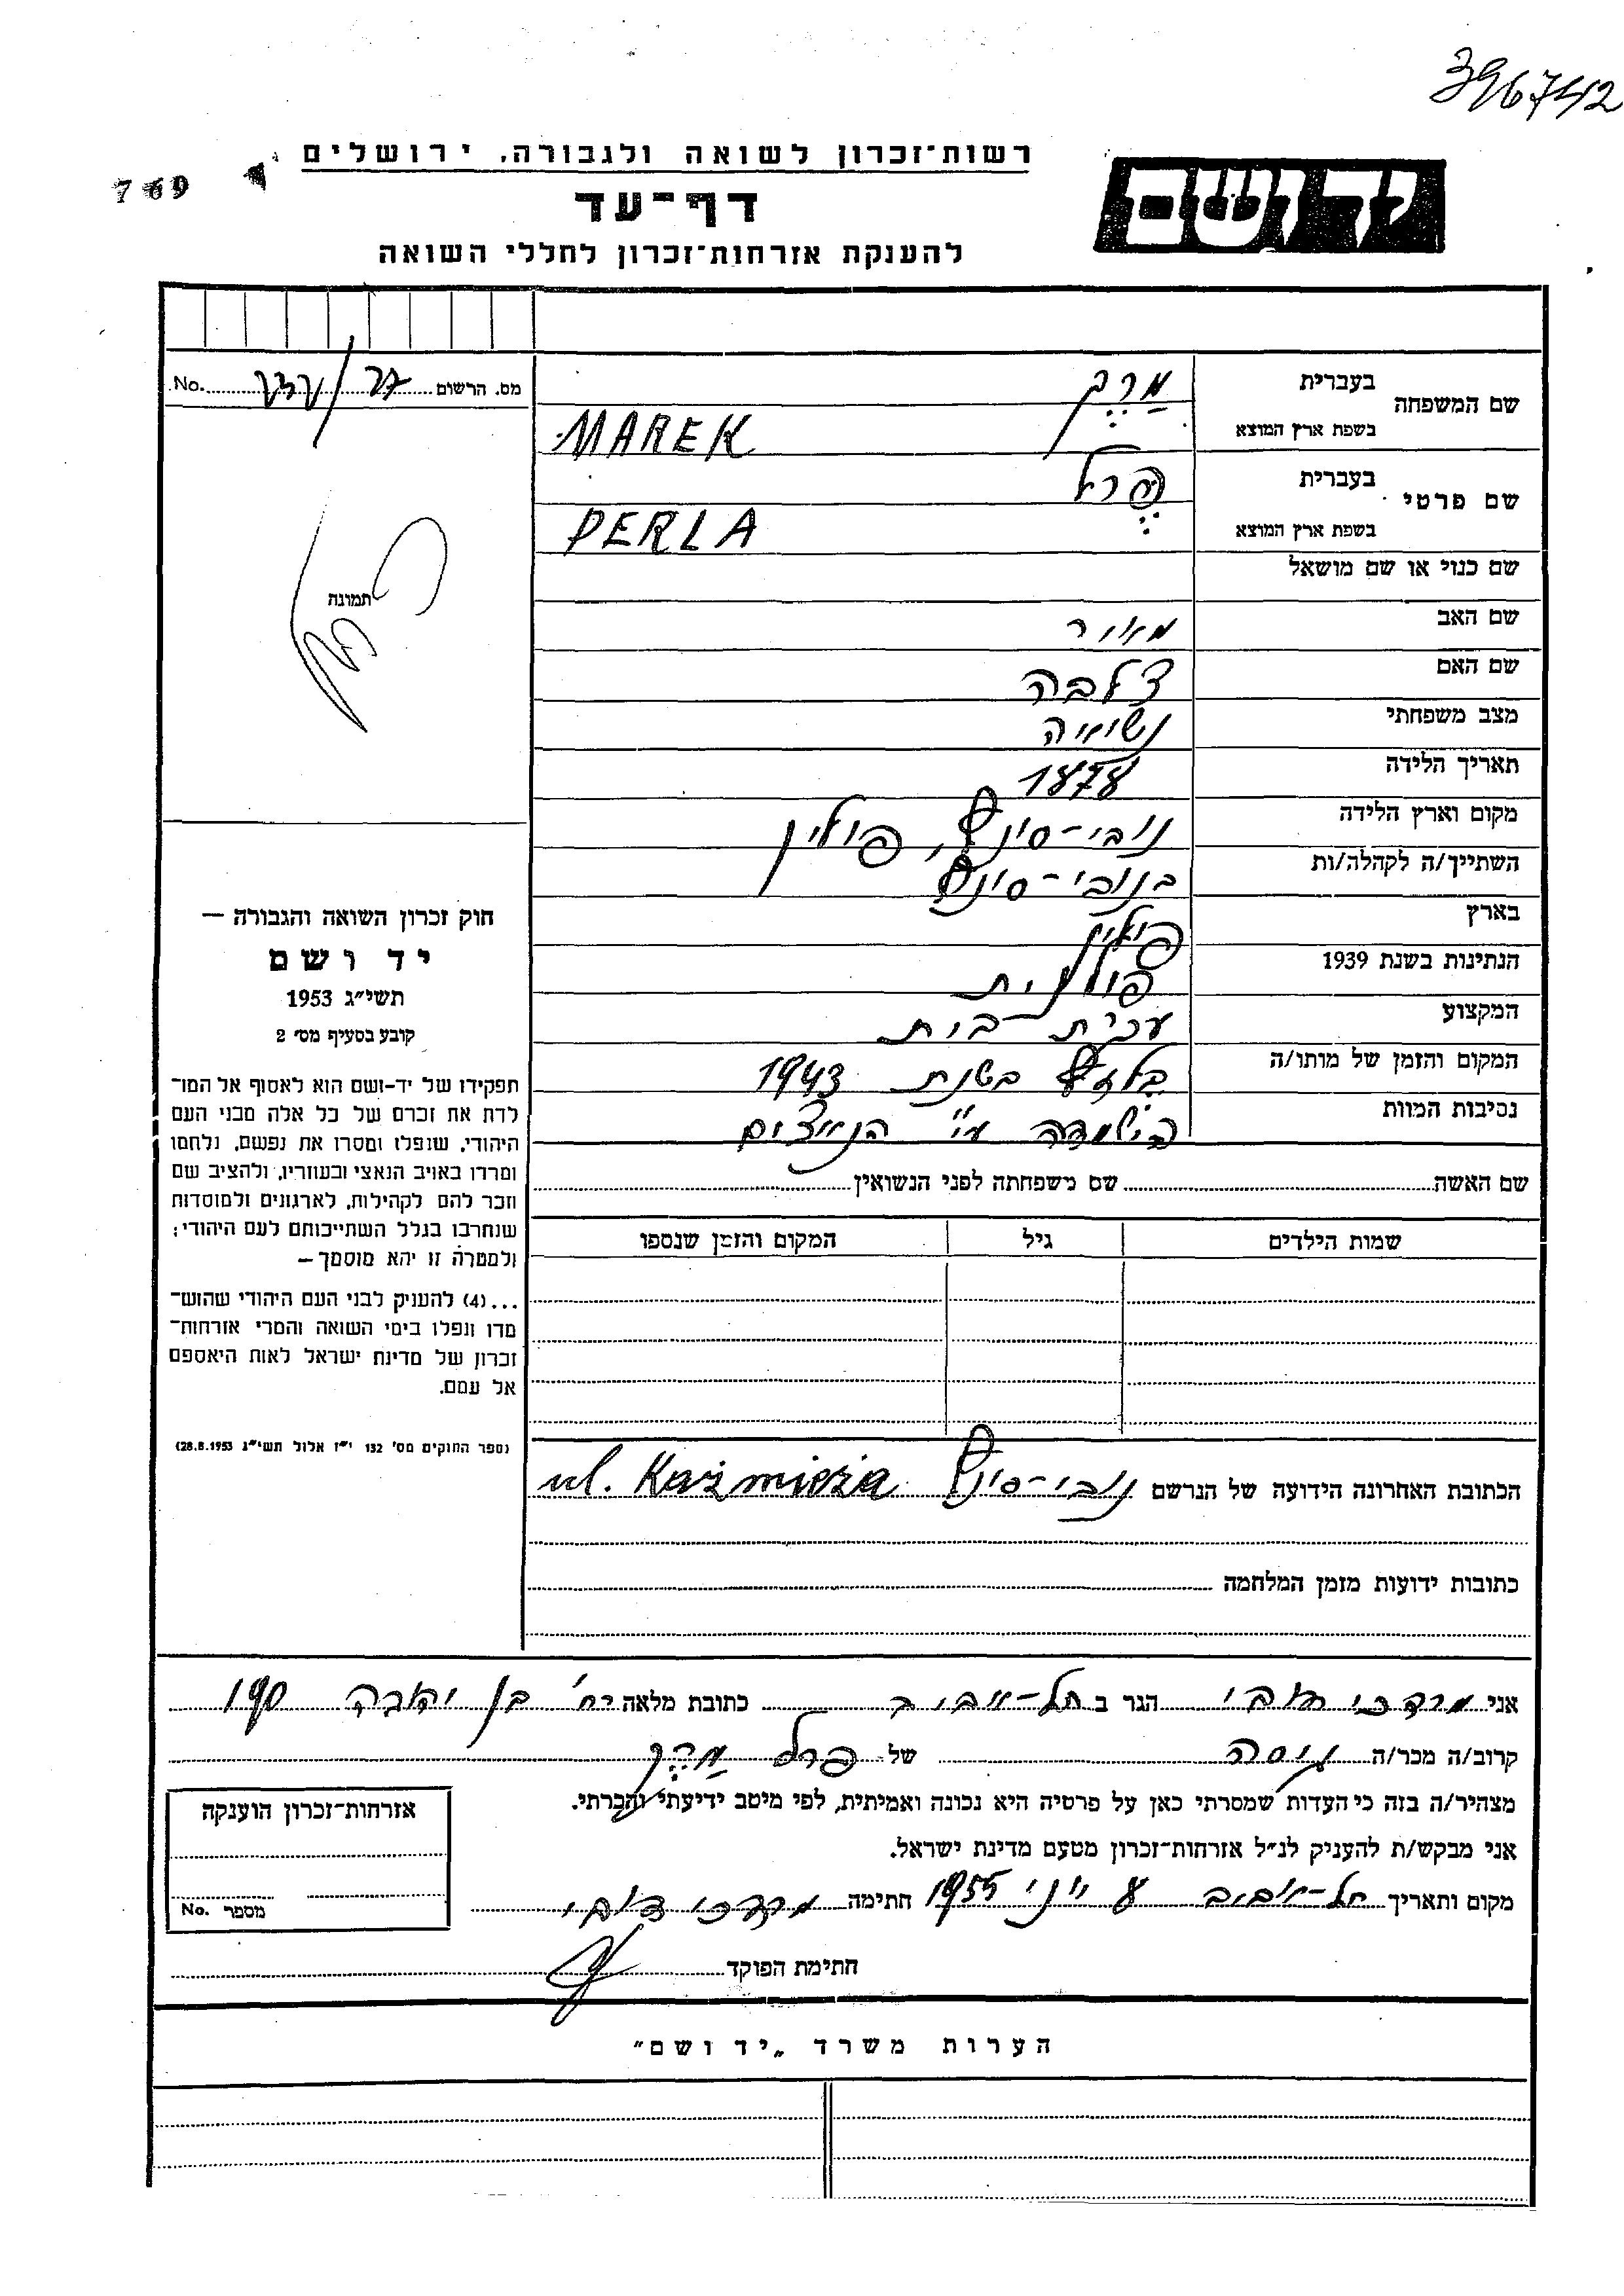 396742
רשות־זכרון לשואה ולגבורה, ירושלים
769
דף־עד
ידושם
להענקת אזרחות־זכרון לחללי השואה
שם המשפחה
בעברית מרק
בשפת ארץ המוצא MAREK
מס. הרשום No.
שם פרטי
בעברית פרל
בשפת ארץ המוצא PERLA
תמונה
שם כנוי או שם מושאל
שם האב מאיר
שם האם
מצב משפחתי נשואה
תאריך הלידה 1878
מקום וארץ הלידה נובי-סונץ, פולין
השתייך/ה לקהלה/ות בנובי-סונץ
בארץ פולין
הנתינות בשנת 1939 פולנית
המקצוע עקרת-בית
המקום והזמן של מותו/ה בלזץ בשנת 1943
נסיבות המוות הושמדה ע"י הנאצים
חוק זכרון השואה והגבורה —
יד ושם
תשי״ג 1953
קובע בסעיף מס׳ 2
תפקידו של יד-ושם הוא לאסוף אל המו־
לדת את זכרם של כל אלה מבני העם
היהודי, שנפלו ומסרו את נפשם, נלחמו
ומרדו באויב הנאצי ובעוזריו, ולהציב שם
וזכר להם לקהילות, לארגונים ולמוסדות
שנחרבו בגלל השתייכותם לעם היהודי;
ולמטרה זו יהא מוסמך —
...(4) להעניק לבני העם היהודי שהוש־
מדו ונפלו בימי השואה והמרי אזרחות־
זכרון של מדינת ישראל לאות היאספם
אל עמם.
(ספר החוקים מס׳ 132 י״ז אלול תשי״ג 28.8.1953)
שם האשה שם משפחתה לפני הנשואין
שמות הילדים גיל המקום והזמן שנספו
הכתובת האחרונה הידועה של הנרשם נובי-סונץ ul. Kaźmieża
כתובות ידועות מזמן המלחמה
אני מרדכי דובי הגר ב תל-אביב כתובת מלאה רח' בן יהודה 190
קרוב/ה מכר/ה גיסה של פרל מרק
מצהיר/ה בזה כי העדות שמסרתי כאן על פרטיה היא נכונה ואמיתית, לפי מיטב ידיעתי והכרתי.
אני מבקש/ת להעניק לנ״ל אזרחות־זכרון מטעם מדינת ישראל.
מקום ותאריך תל-אביב יוני 1955 חתימה מרדכי דובי
חתימת הפוקד
אזרחות־זכרון הוענקה
מספר No.
הערות משרד „יד ושם״